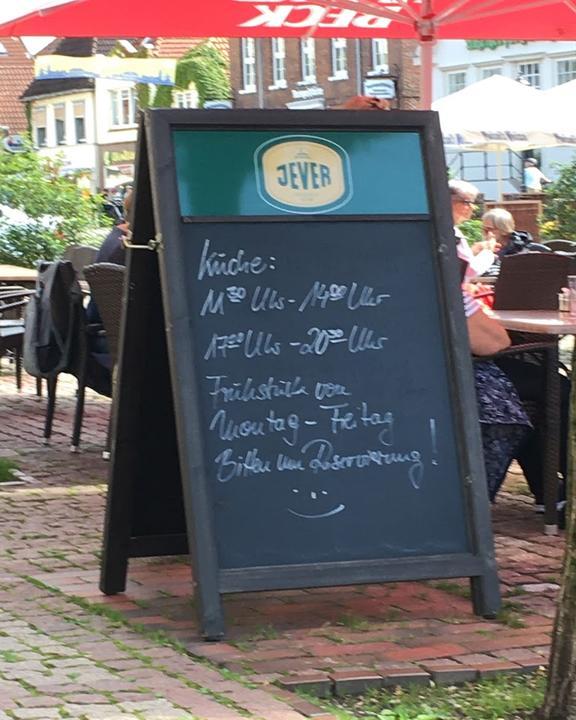 BECK
JEVER
Küche:
11³⁰ Uhr - 14⁰⁰ Uhr
17⁰⁰ Uhr - 20³⁰ Uhr
Frühstück von
Montag - Freitag
Bitten um Reservierung!